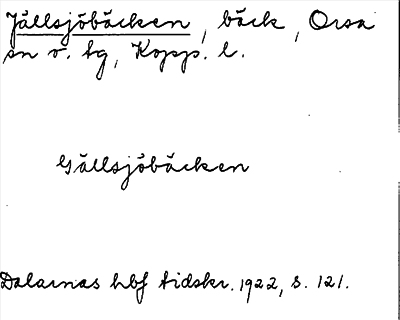 Jällsjöbäcken, bäck, Orsa
sn o. tg, Kopp. l.
Gällsjöbäcken
Dalarnas hbf tidskr. 1922, s. 121.